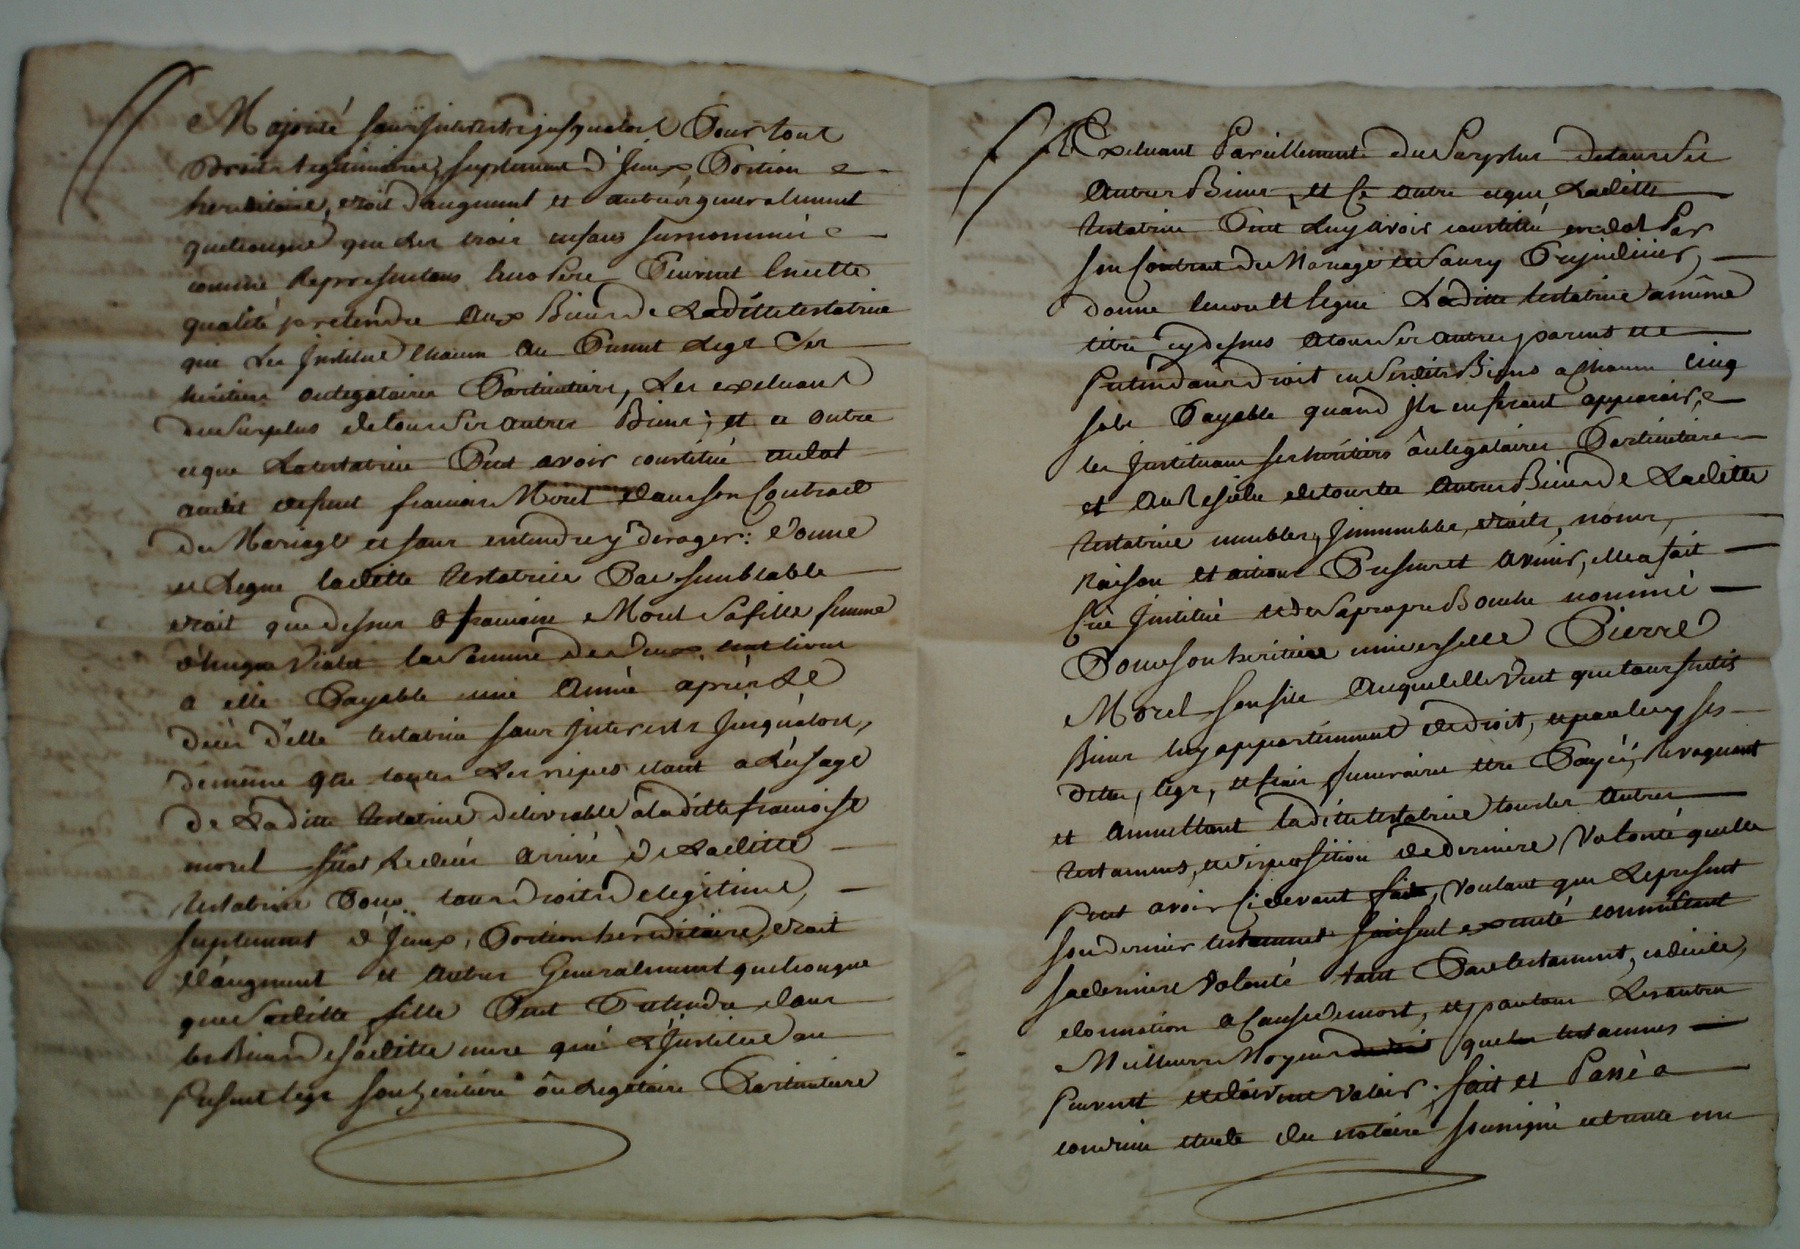 Majorité sans interestz jusqualors Pour tout
droits legitimaires, suplement d'Jceux, Portion
hereditaire, droit daugment et autres generalement
quelconque que les trois enfans surnommés
comme Representans leur Pere Peuvent en cette
qualité pretendre aux Biens de Laditte testatrice
qui les Jnstitue chacun au Present legs ses
héritiers ou legataires Particuliers, Les excluant
du Surplus de tous ses autres Biens; et a outre
ce que La testatrice Peut avoir constitué en dot
audit defunt francois Morel dans son Contract
de Mariage et sans entendre y deroger: Donne
et Legue laditte testatrice Par semblable
droit que dessus a francoise Morel Sa fille femme
d'hugue Violet la Somme de deux cent livres
a elle Payable une Année après Le
décès d'elle testatrice sans Jnterests Jusqualors,
de meme que toutes Les nipes etant a L'usage
de Laditte testatrice delivrable a laditte francoise
morel sitot Le décés arrivé de Laditte
testatrice Pour tous droits de legitime,
suplement d'Jceux, Portion hereditaire, droit
d'augment et autres Generalement quelconque
que Saditte fille Peut Pretendre dans
les Biens de saditte mere qui L'Justitue au
Present legs son heritiere ou Legataire Particuliere
L'Excluant Pareillement du Surplus de tous ses
autres Biens, et Ce outre ce que Laditte
testatrice Peut Luy avoir constitué en dot Par
son Contrat de Mariage et Sans y Prejudicier,
donne encore et legue Laditte testatrice a même
titre cy dessus a tous ses autres parens et
Pretendans droit en Sesdits Biens a Chacun Cinq
sols Payable quand Jls en feront apparoir,
les Jnstituant ses héritiers ou legataires Particuliers
et Au Residu de tous les autres Biens de Laditte
testatrice meubles, Jmmeubles, droits, noms,
Raison et actions Present et avenir, elle a fait
Créé Jnstitué et de Sa propre Bouche nommé
Pour son heritier universelle Pierre
Morel son fils Auquel elle Veut que tous sesdits
Biens luy appartiennent de droit, et par luy ses
dettes, legs, et frais funeraires etre Payés, Revoquant
et Annullant laditte testatrice tous les autres
testamens, et disposition de derniere Volonté quelle
Peut avoir Ci devant fait, Voulant que Le present
son dernier testament soit seul executé comme etant
sa derniere Volonté tant Par testament, codicile,
donnation a Cause de mort, et par tous Les autres
Meilleurs Moyens que les testamens
Peuvent et doivent Valoir. fait et Passé a
condrieu etude du notaire soussigné ce trente un